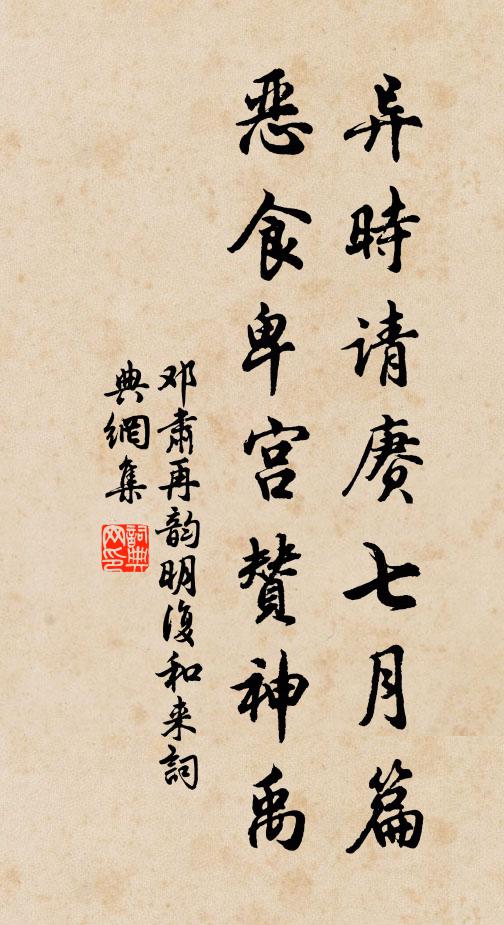 异時请赓七月篇
恶食卑宫赞神禹
邓肃再韵明復和来詞
典網集
詞典网印